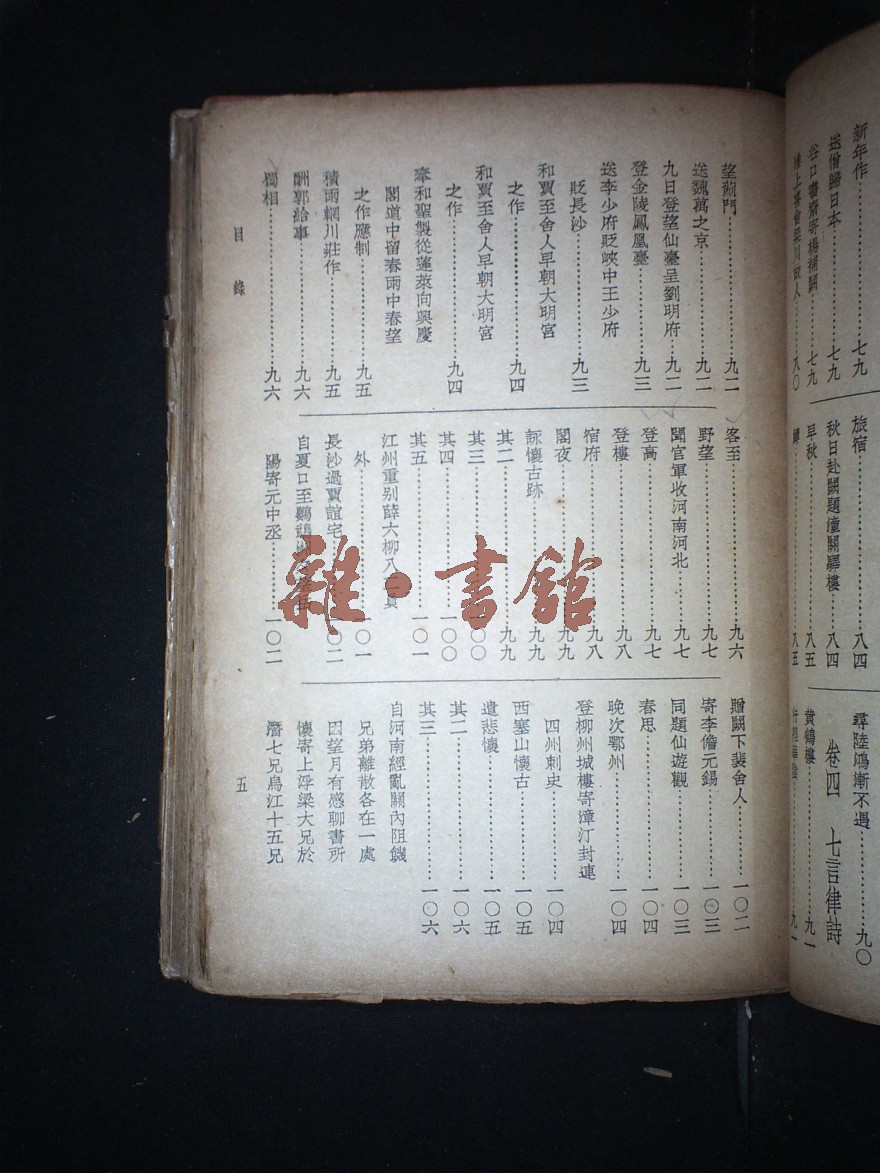 新年作………七九
送僧歸日本………七九
谷口書齋寄楊補闕………七九
淮上喜會梁川故人………八〇
旅宿………八四
秋日赴闕題潼關驛樓………八四
早秋………八五
蟬………八五
尋陸鴻漸不遇………九〇
卷四 七言律詩
黃鶴樓………九一
行經華陰………九一
望薊門………九二
送魏萬之京………九二
九日登望仙臺呈劉明府………九二
登金陵鳳凰臺………九三
送李少府貶峽中王少府
貶長沙………九三
和賈至舍人早朝大明宮
之作………九四
和賈至舍人早朝大明宮
之作………九四
奉和聖製從蓬萊向興慶
閣道中留春雨中春望
之作應制………九五
積雨輞川莊作………九五
酬郭給事………九六
蜀相………九六
客至………九六
野望………九七
聞官軍收河南河北………九七
登高………九七
登樓………九八
宿府………九八
閣夜………九九
詠懷古跡………九九
其二………九九
其三………一〇〇
其四………一〇〇
其五………一〇一
江州重別薛六柳八二員
外………一〇一
長沙過賈誼宅………一〇二
自夏口至鸚鵡
陽寄元中丞………一〇二
贈闕下裴舍人………一〇二
寄李儋元錫………一〇三
同題仙遊觀………一〇三
春思………一〇四
晚次鄂州………一〇四
登柳州城樓寄漳汀封連
四州刺史………一〇四
西塞山懷古………一〇五
遣悲懷………一〇五
其二………一〇六
其三………一〇六
自河南經亂關內阻饑
兄弟離散各在一處
因望月有感聊書所
懷寄上浮梁大兄於
潛七兄烏江十五兄
目錄
五
雜·書館